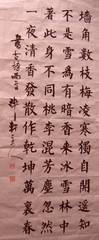 墙角數枝梅凌寒獨自開遥知
不是雪為有暗香來冰雪林中
著此身不同桃李混芳塵忽然
一夜清香發散作乾坤萬里春